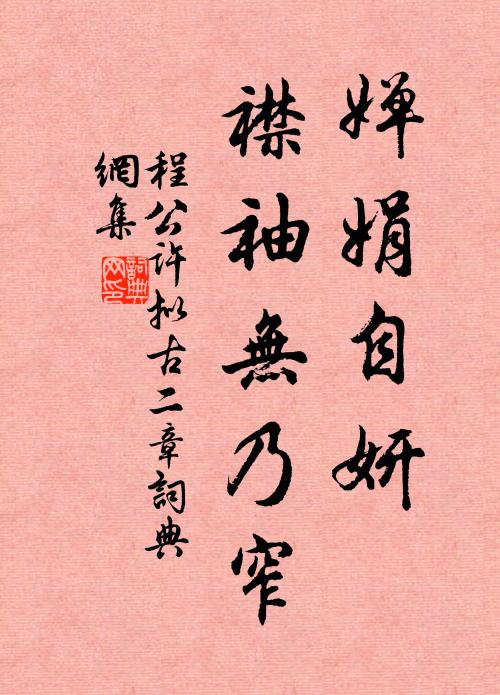 嬋娟自妍
襟袖無乃窄
程公許拟古二章詞典
網集
詞典網印